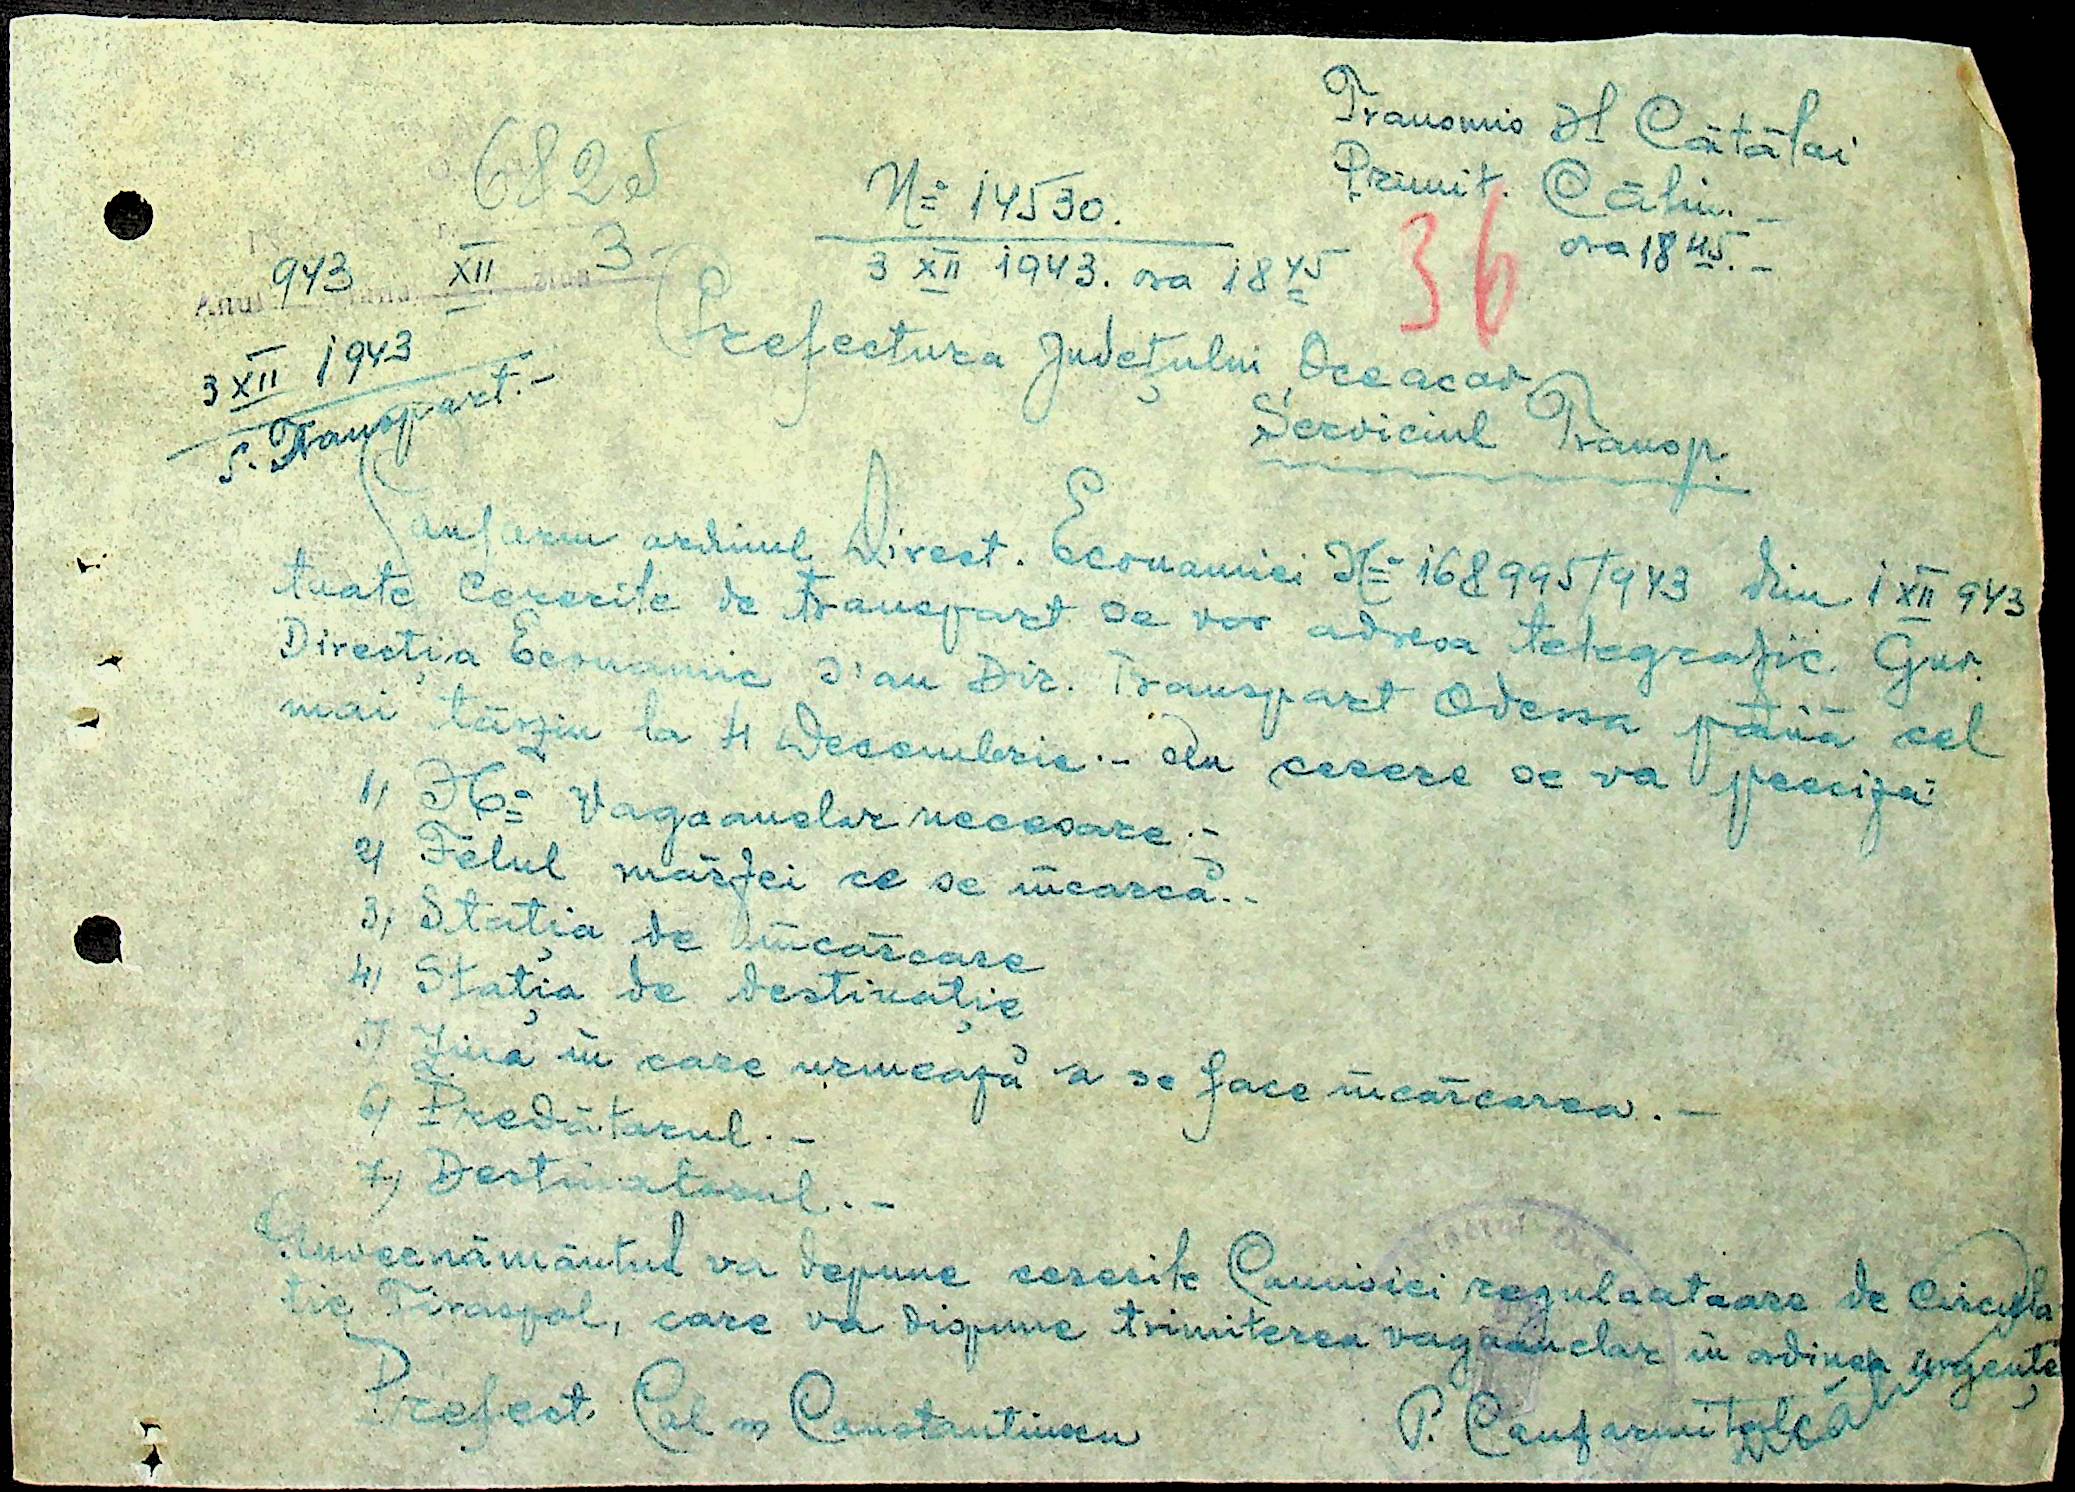 Transmis Dl Cătălai
Primit. Călin. –
ora 18 45. –
6825
Nº 14530.
3 XII 1943. ora 18 45
36
Anul 943 luna XII ziua 3 –
3 XII 1943
S. Transport. –
Prefectura Județului Oceacov
Serviciul Transp.
Conform ordinul Direct. Economiei Nº 168995/943 din 1 XII 943
toate cererile de transport se vor adresa telegrafic. Guv.
Direcția Economic S'au Dir. Transport Odessa până cel
mai târziu la 4 Decembrie. – În cerere se va precifa:
1) Nº Vagoanelor necesare. –
2) Felul mărfei ce se încarcă. –
3) Stația de încărcare
4) Stația de destinație
5) Ziua în care urmează a se face încărcarea. –
6) Predătorul. –
7) Destinatorul. –
Guvernământul va depune cererile Comisiei regulatoare de Circula
tie Tiraspol, care va dispune trimiterea vagoanelor în ordinea urgențe
Prefect Col ss Constantinescu
P. Conformitate